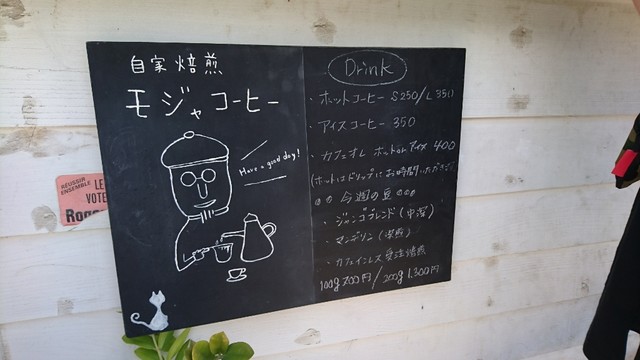 自家焙煎
モジャコーヒー
Have a good day!
RÉUSSIR
ENSEMBLE
LE
VOTE
Drink
・ホットコーヒー S250/L350
・アイスコーヒー 350
・カフェオレ ホットorアイス 400
(ホットはドリップにお時間いただきます
今週の豆
・ジャンゴブレンド(中深)
・マンデリン(深煎)
・カフェインレス 受注焙煎
100g 700円/200g 1.300円